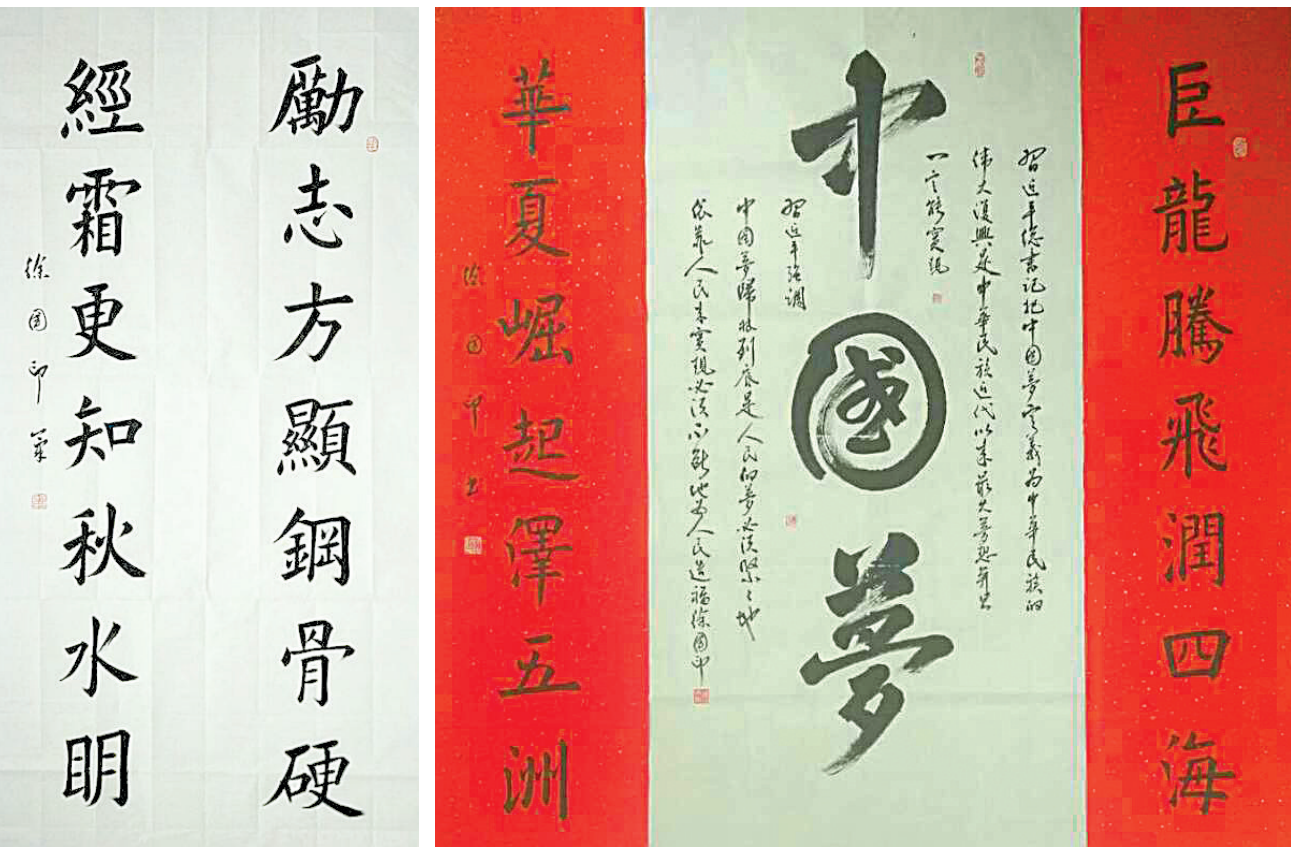 勵志方顯鋼骨硬
經霜更知秋水眀
徐国印
巨龍騰飛潤四海
中國夢
習近平总书记把中国夢定義为中華民族的
伟大復興是中華民族近代以来最大夢想并且
一定能實現
習近平强調
中国夢歸根到底是人民的夢必须緊々地
依靠人民来實現必须不断地为人民造福徐国印
華夏崛起澤五洲
徐国印书